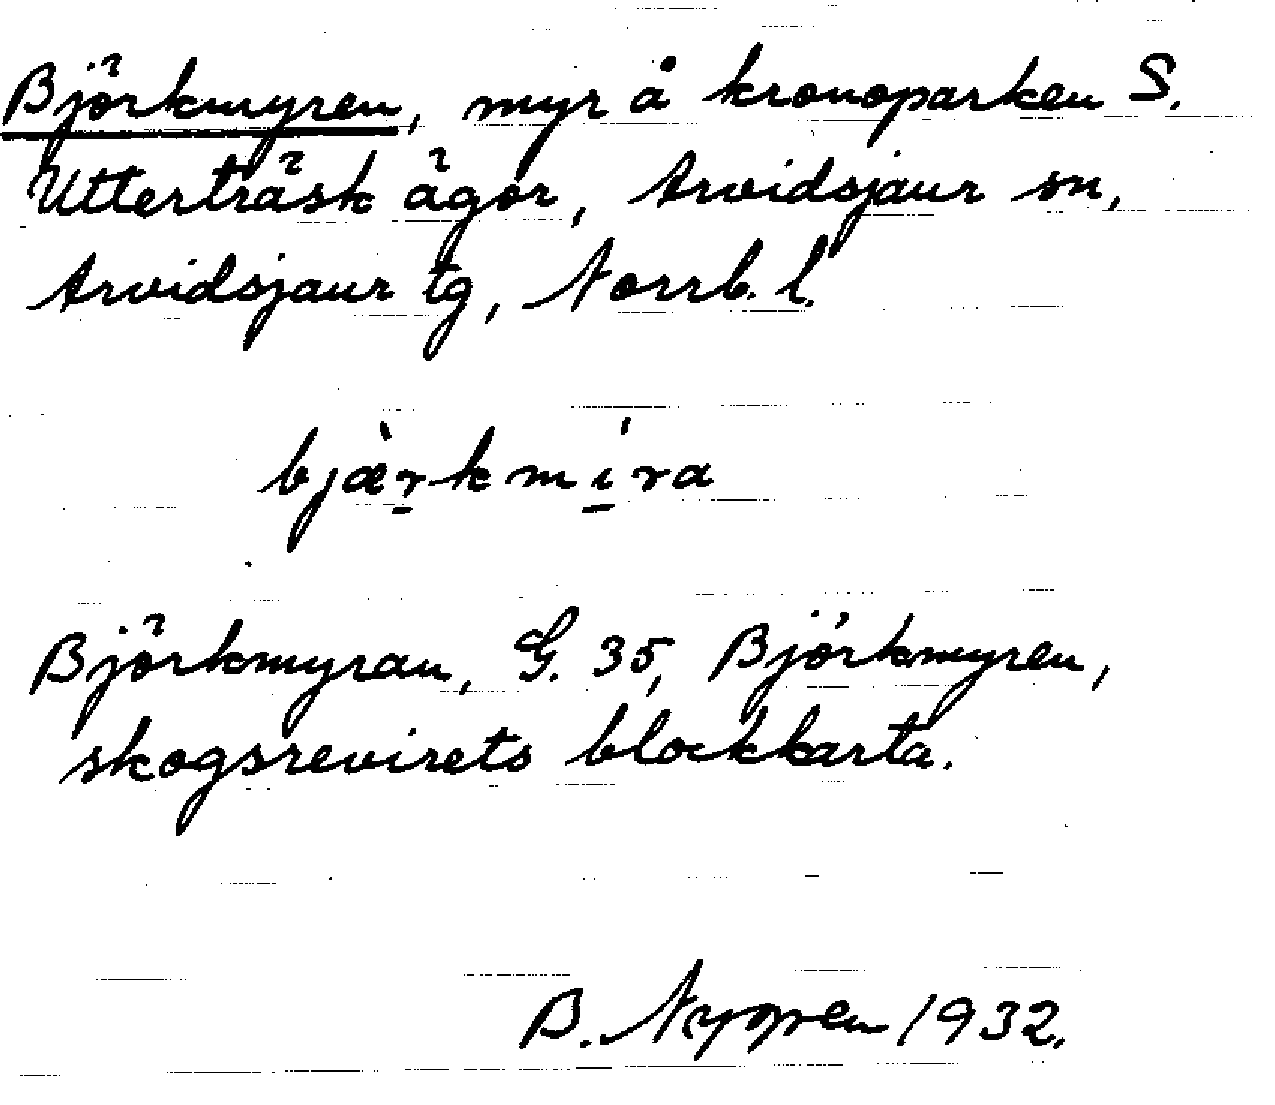 Björkmyren, myr å kronoparken S.
Utterträsk ägor, Arvidsjaur sn,
Arvidsjaur tg, Norrb. l.
bjæ̀r̠kmí̠ra
Björkmyran, G. 35, Björkmyren,
skogsrevirets blockkarta.
B. Nygren 1932.